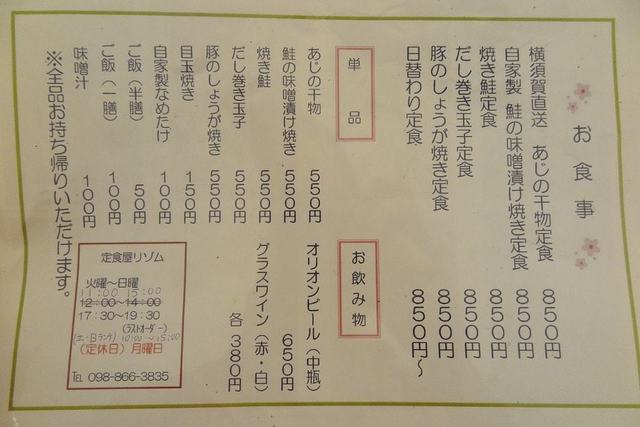 お食事
横須賀直送 あじの干物定食 850円
自家製 鮭の味噌漬け焼き定食 850円
焼き鮭定食 850円
だし巻き玉子定食 850円
豚のしょうが焼き定食 850円
日替わり定食 850円〜
単品
あじの干物 550円
鮭の味噌漬け焼き 550円
焼き鮭 550円
だし巻き玉子 550円
豚のしょうが焼き 550円
目玉焼き 150円
自家製なめたけ 100円
ご飯(半膳) 50円
ご飯(一膳) 100円
味噌汁 100円
※全品お持ち帰りいただけます。
お飲み物
オリオンビール(中瓶) 650円
グラスワイン(赤・白) 各 380円
定食屋リゾム
火曜〜日曜
11:00 15:00
12:00〜14:00
17:30〜19:30
(ラストオーダー)
(土・日ランチ) 10:00〜15:00
(定休日) 月曜日
TEL 098-866-3835